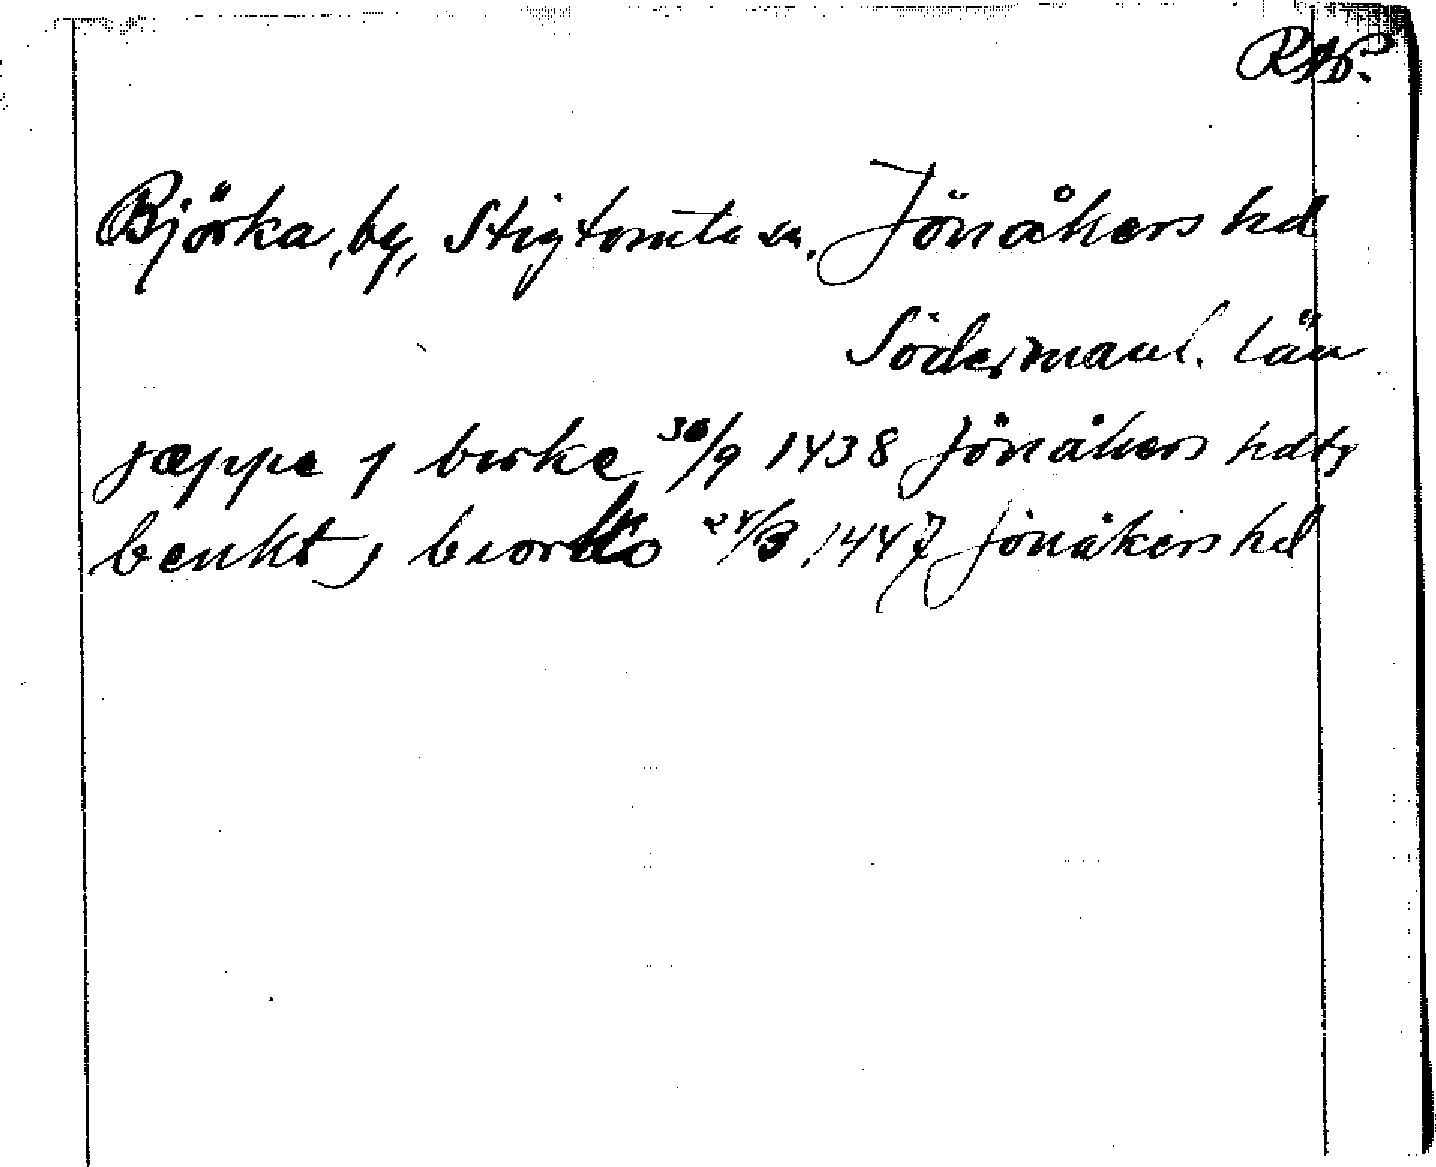 RAp.
Björka, by, Stigtomta sn. Jönåkers hd
Södermanl. län
jæppe j birke 30/9 1438 Jönåkers hdtg
benkt j biorko 24/3 1447 Jönåkers hd